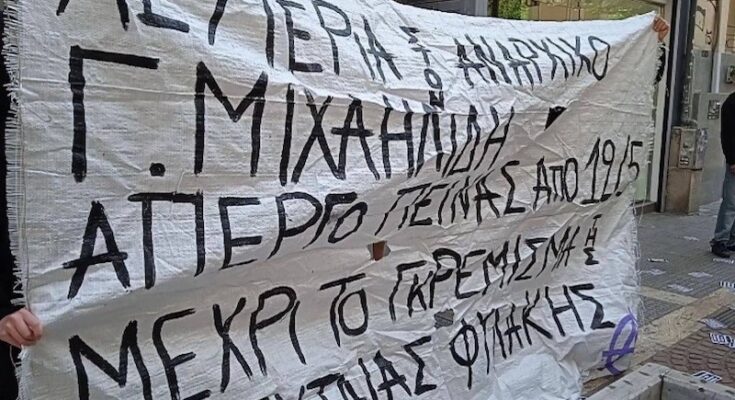 ΛΕΥΤΕΡΙΑ ΣΤΟΝ ΑΝΑΡΧΙΚΟ
Γ. ΜΙΧΑΗΛΙΔΗ
ΑΠΕΡΓΟ ΠΕΙΝΑΣ ΑΠΟ 12/5
ΜΕΧΡΙ ΤΟ ΓΚΡΕΜΙΣΜΑ ΤΗΣ
ΦΥΛΑΚΗΣ